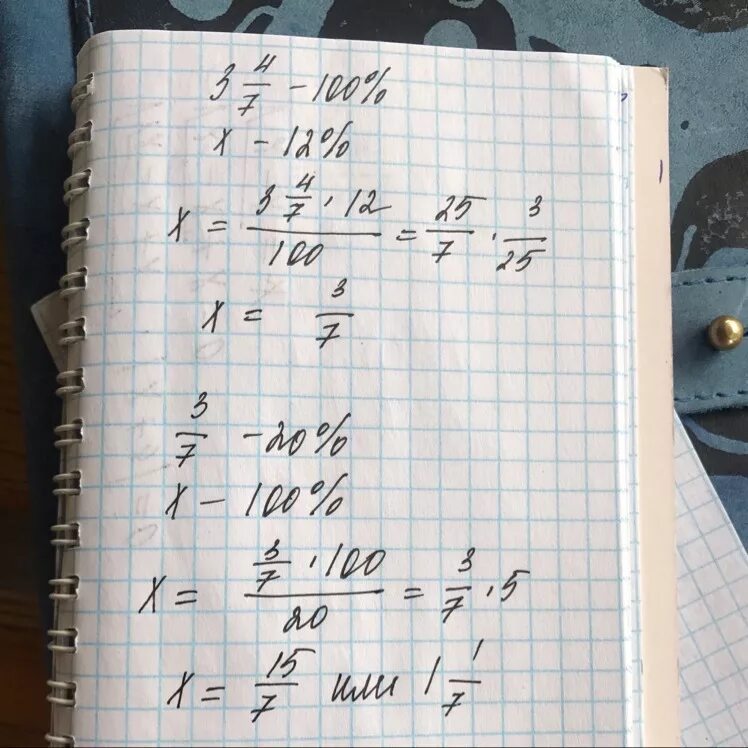 3 4/7 - 100%
x - 12%
x = (3 4/7 · 12)/100 = 25/7 · 3/25
x = 3/7
3/7 - 20%
x - 100%
x = (3/7 · 100)/20 = 3/7 · 5
x = 15/7 или 1 1/7